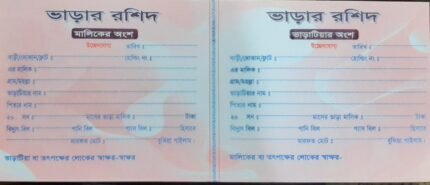 ভাড়ার রশিদ
মালিকের অংশ
তারিখ :
বাড়ী/দোকান/ফ্ল্যাট হোল্ডিং নং :
এর মালিক :
গ্রাম/মহল্লা :
ভাড়াটিয়ার নাম :
পিতার নাম :
২০ সন মাসের ভাড়া মালিক : টাকা
বিদ্যুৎ বিল : পানি বিল : হিসাবে
মারফত মোট : বুঝিয়া পাইলাম।
ভাড়াটিয়া বা তৎপক্ষের লোকের স্বাক্ষর-স্বাক্ষর
ভাড়ার রশিদ
ভাড়াটিয়ার অংশ
তারিখ :
বাড়ী/দোকান/ফ্ল্যাট হোল্ডিং নং :
এর মালিক :
গ্রাম/মহল্লা :
ভাড়াটিয়ার নাম :
পিতার নাম :
২০ সন মাসের ভাড়া মালিক : টাকা
বিদ্যুৎ বিল : পানি বিল : হিসাবে
মারফত মোট : বুঝিয়া পাইলাম।
মালিকের বা তৎপক্ষের লোকের স্বাক্ষর-